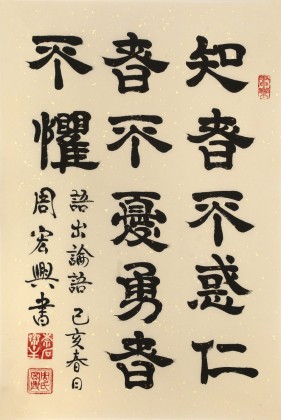 知者不惑仁
者不憂勇者
不懼
語出論語己亥春日
周宏興書